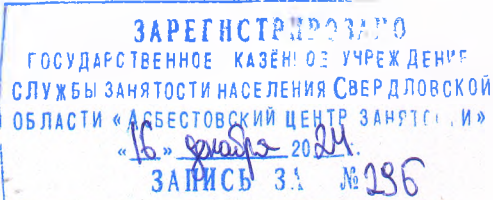 ЗАРЕГИСТРИРОВАНО
ГОСУДАРСТВЕННОЕ КАЗЁННОЕ УЧРЕЖДЕНИЕ
СЛУЖБЫ ЗАНЯТОСТИ НАСЕЛЕНИЯ СВЕРДЛОВСКОЙ
ОБЛАСТИ «АСБЕСТОВСКИЙ ЦЕНТР ЗАНЯТОСТИ»
«16» декабря 2024 г.
ЗАПИСЬ ЗА № 296